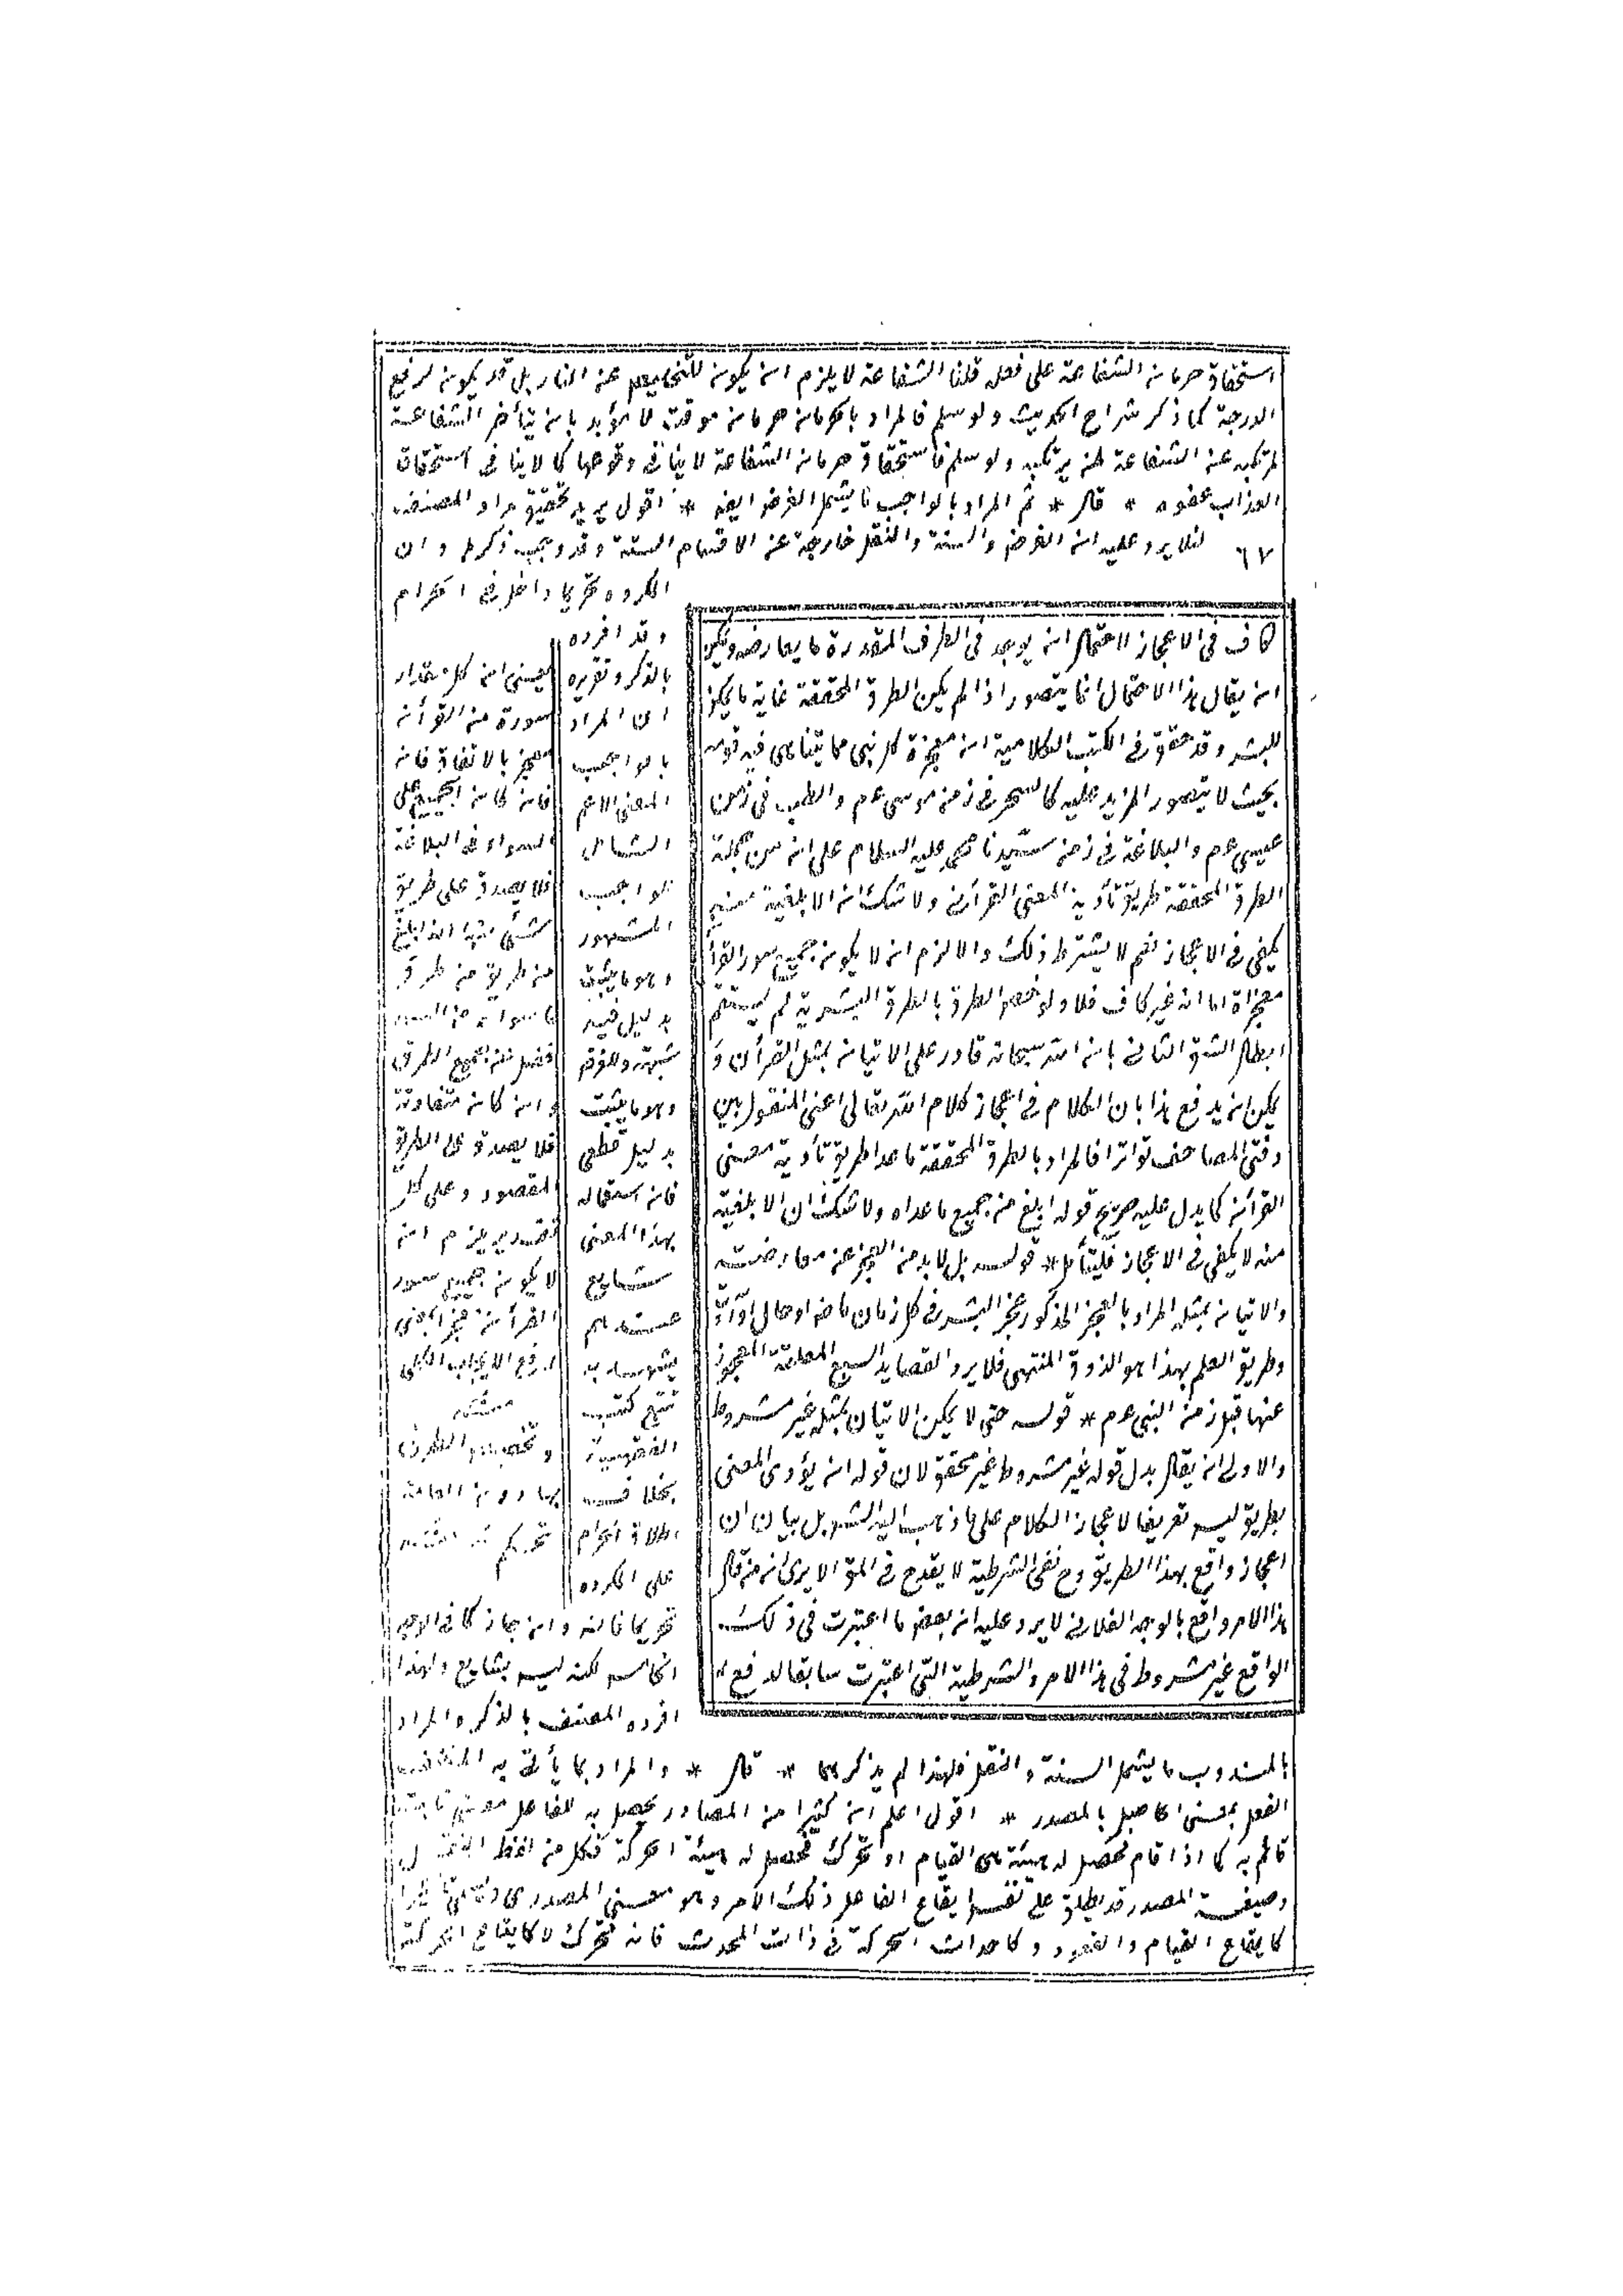 استحقاق حرمان الشفاعة على فعله قلنا الشفاعة لا يلزم ان يكون للتخليص عن النار بل قد يكون لرفع
الدرجة كما ذكر شراح الحديث ولو سلم فالمراد بالحرمان حرمان موقت لا مؤبد بان يتأخر الشفاعة
لمرتكبه عن الشفاعة لمن يرتكبه ولو سلم فاستحقاق حرمان الشفاعة لا ينافى وقوعها كما لا ينافى استحقاق
العذاب عفوه * قال * ثم المراد بالواجب ما يشمل الفرض ايضا * اقول يريد تحقيق مراد المصنف
لئلا يرد عليه ان الفرض والسنة والنفل خارجة عن الاقسام الستة وقد وجب ذكرها وان
٦٧
المكروه تحريما داخل فى الحرام
وقد افرده
بالذكر وتقريره
ان المراد
بالواجب
المعنى الاعم
الشامل
للواجب
المشهور
وهو ما يثبت
بدليل فيه
شبهة وللفرض
وهو ما يثبت
بدليل قطعى
فان استعماله
بهذا المعنى
شايع
عندهم
يشهد به
تتبع كتب
الفقهية
بخلاف
اطلاق الحرام
على المكروه
تحريما فانه وان جاز كما فى الوجه
الخامس لكنه ليس بشايع ولهذا
افرده المصنف بالذكر والمراد
بالمندوب ما يشمل السنة والنفل فلهذا لم يذكرهما * قال * والمراد بما يأتى به المكلف
الفعل بمعنى الحاصل بالمصدر * اقول اعلم ان كثيرا من المصادر يحصل به للفاعل معنى ثابت
قائم به كما اذا قام فحصل له هيئة هى القيام او تحرك فحصل له هيئة الحركة فكل من لفظ الفعل
وصيغة المصدر قد يطلق على نفس ايقاع الفاعل ذلك الامر وهو معنى المصدرى
كايقاع القيام والقعود وكاحداث الحركة فى ذات المحدث فانه تحرك لا كايقاع الحركة
كاف فى الاعجاز لاحتمال ان يوجد فى الطرف المقدرة ما يعارضه ويمكن
ان يقال هذا الاحتمال انما يتصور اذا لم يكن الطرق المحققة غاية ما يمكن
للبشر وقد حقق فى الكتب الكلامية ان معجزة كل نبى مما يتناهى فيه قومه
بحيث لا يتصور المزيد عليه كالسحر فى زمن موسى عم والطب فى زمن
عيسى عم والبلاغة فى زمن سيدنا محمد عليه السلام على ان من جملة
الطرق المحققة طريق تأدية المعنى القرآن ولا شك ان الابلغية منه
يكفى فى الاعجاز نعم لا يشترط ذلك والا لزم ان لا يكون جميع سور القرآن
معجزة اما انه غير كاف فلا ولو خص الطرق بالطرق البشرية لم يستقم
ابطال الشق الثانى بان الله سبحانه قادر على الاتيان بمثل القرآن و
يمكن ان يدفع هذا بان الكلام فى اعجاز كلام الله تعالى اعنى المنقول بين
دفتى المصاحف تواترا فالمراد بالطرق المحققة ما عدا طريق تأدية معنى
القرآن كما يدل عليه صريح قوله ابلغ من جميع ما عداه ولا شك ان الابلغية
منه لا يكفى فى الاعجاز فليتأمل * قوله بل لا بد من العجز عن معارضته
والاتيان بمثله المراد بالعجز المذكور عجز البشر فى كل زمان ماض او حال او آت
وطريق العلم بهذا هو الذوق المنتهى فلا يرد القصايد السبع المعلقة المعجوز
عنها قبل زمن النبى عم * قوله حتى لا يمكن الاتيان بمثله غير مشروط
والاولى ان يقال بدل قوله غير مشروط غير محقق لان قوله ان يؤدى المعنى
بطريق ليس تعريفا لاعجاز الكلام على ما ذهب اليه الشر بل بيان ان
اعجاز واقع بهذا الطريق وح نفى الشرطية لا يقدح فى المق الا يرى ان من قال
هذا الامر واقع بالوجه الفلانى لا يرد عليه ان بعض ما اعتبرت فى ذلك
الواقع غير مشروط فى هذا الامر والشرطية التى اعتبرت سابقا لدفع
يعنى ان كل مقدار
سورة من القرأن
معجز بالاتفاق فانه
فان كان الجميع على
السواء فى البلاغة
فلا يصدق على طريق
شئ منها انه ابلغ
من طريق من طرق
ما سواه من السور
فضل عن جميع الطرق
وان كان متفاوتة
فلا يصدق على الطريق
المقصود وعلى كل
تقدير يلزم ان
لا يكون جميع سور
القرأن معجزا بمعنى
رفع الايجاب الكلى
منه
وتخصيص الطرق
بها دون العامة
تحكم